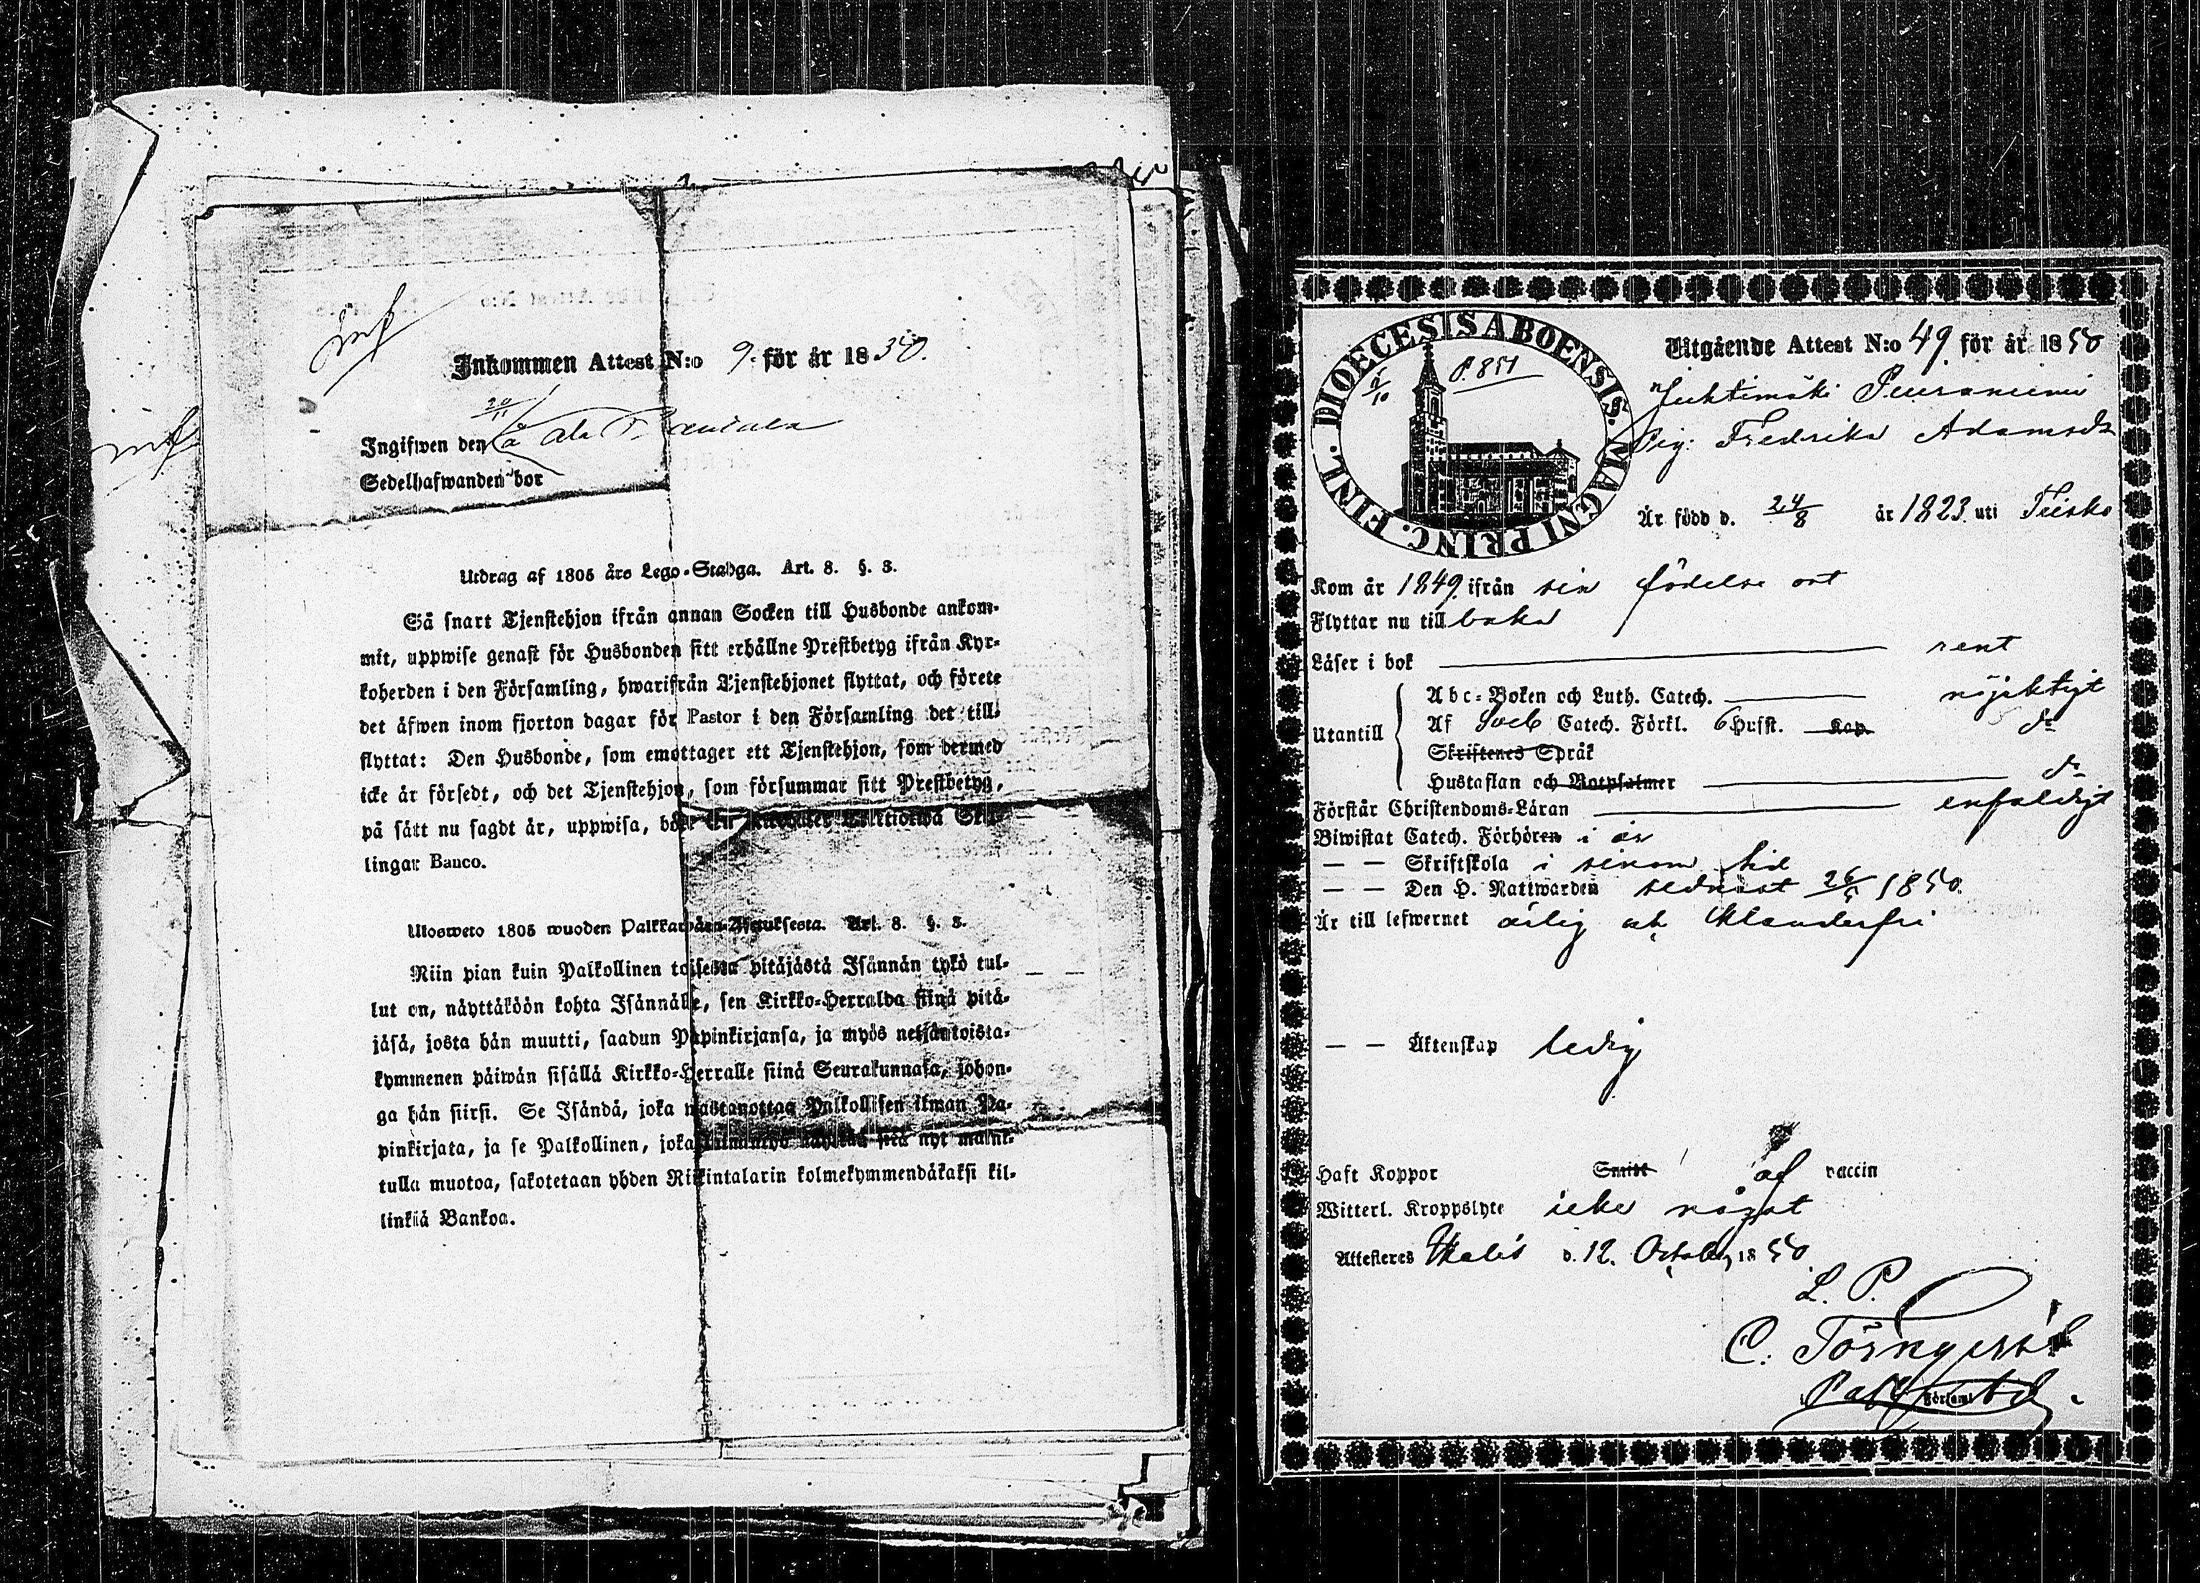 Inkommen Attest N:o 9. för år 1830.
20/11
Ingifwen den
Sedelhafwanden bor
Utdrag af 1805 års Lego-Stadga. Art. 8. §. 3.
Så snart Tjenstehjon ifrån annan Socken till Husbonde ankom-
mit, uppwise genast för Husbonden sitt erhållne Prestbetyg ifrån Kyr-
koherden i den Församling, hwarifrån Tjenstehjonet flyttat, och förete
det äfwen inom fjorton dagar för Pastor i den Församling det till-
flyttat: Den Husbonde, som emottager ett Tjenstehjon, som dermed
icke är försedt, och det Tjenstehjon, som försummar sitt Prestbetyg,
på sätt nu sagdt är, uppwisa, böte
lingar Banco.
Ulosweto 1805 wuoden Palkkawäen-Asetuksesta. Art. 8. §. 3.
Niin pian kuin Palkollinen toisesta pitäjästä Isännän tykö tul-
lut on, näyttäköön kohta Isännälle, sen Kirkko-Herralda siinä pitä-
jäsä, josta hän muutti, saadun Papinkirjansa, ja myös neljäntoista-
kymmenen päiwän sisällä Kirkko-Herralle siinä Seurakunnasa, johon-
ga hän siirsi. Se Isändä, joka wastanottaa Palkollisen ilman Pa-
pinkirjata, ja se Palkollinen, joka nyt mainit-
tulla muotoa, sakotetaan yhden Riikintalarin kolmekymmendäkaksi kil-
linkiä Bankoa.
DIOECESIS ABOENSIS. MAGNI PRINC. FINL.
P. 851
Utgående Attest N:o 49 för år 1850
Juhtimäki Peuraniemi
Pig: Fredrika Adamsdr
Är född d. 24/8 år 1823. uti Teisko
Kom år 1849. ifrån sin födelse ort
Flyttar nu till baka
Läser i bok rent
Utantill
Abc-Boken och Luth. Catech. nöjaktigt
Af Sveb Catech. Förkl. 6 Hufst. Kap. do
Skriftenes Språk
Hustaflan och Botpsalmer do
Förstår Christendoms-Läran enfaldigt
Biwistat Catech. Förhören i år
— — Skriftskola i sinom tid
— — Den H. Nattwarden sednast 1850.
Är till lefwernet ärlig och klanderfri
— — Äktenskap ledig
Haft Koppor Smitt af vaccin
Witterl. Kroppslyte icke något
Attesteres d. 12. October 1850.
L. P.
C. Törnqvist